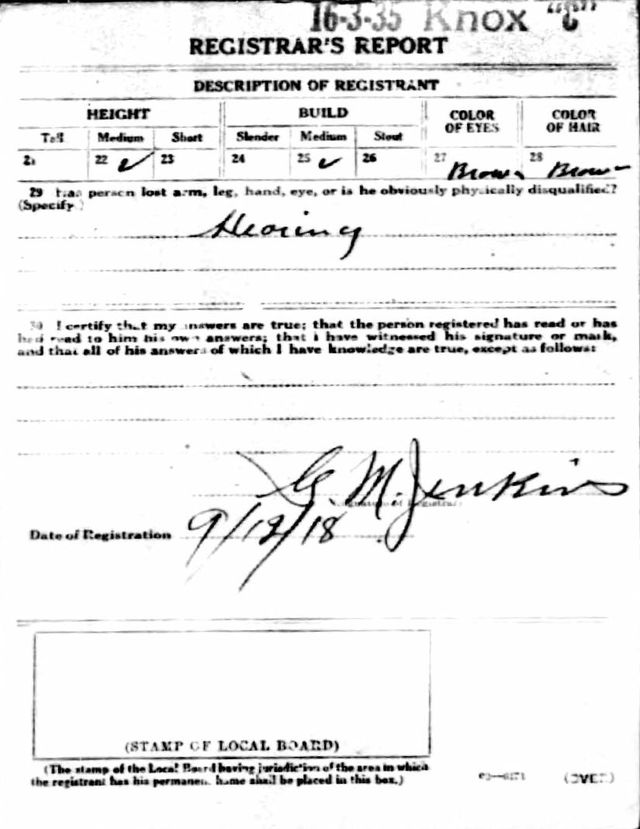 16-3-35 Knox "C"
REGISTRAR'S REPORT
DESCRIPTION OF REGISTRANT
HEIGHT BUILD COLOR OF EYES COLOR OF HAIR
Tall Medium Short Slender Medium Stout
21 22 ✓ 23 24 25 ✓ 26 27 Brown 28 Brown
29 Has person lost arm, leg, hand, eye, or is he obviously physically disqualified?
(Specify.)
Hearing
30 I certify that my answers are true; that the person registered has read or has
had read to him his own answers; that I have witnessed his signature or mark,
and that all of his answers of which I have knowledge are true, except as follows:
M. Jenkins
Date of Registration 9/12/18
(STAMP OF LOCAL BOARD)
(The stamp of the Local Board having jurisdiction of the area in which
the registrant has his permanent home shall be placed in this box.)
(OVER)